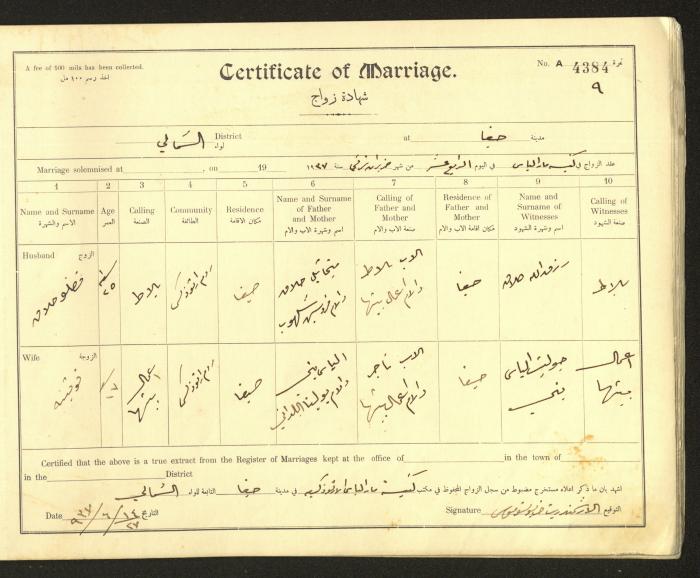 A fee of 500 mils has been collected.
اخذ رسم ٥٠٠ مل
Certificate of Marriage.
No. A 4384 نمرة
٩
شهادة زواج
الشمالي District لواء at حيفا مدينة
Marriage solemnised at , on 19
عقد الزواج في كنيسة مار الياس في اليوم الرابع عشر من شهر حزيران شرقي سنة ١٩٣٧
1 2 3 4 5 6 7 8 9 10
Name and Surname الاسم والشهرة
Age العمر
Calling الصنعة
Community الطائفة
Residence مكان الاقامة
Name and Surname of Father and Mother اسم وشهرة الاب والام
Calling of Father and Mother صنعة الاب والام
Residence of Father and Mother مكان اقامة الاب والام
Name and Surname of Witnesses اسم وشهرة الشهود
Calling of Witnesses صنعة الشهود
Husband الزوج
حلاق
٢٥
بلاط
روم ارثوذكس
حيفا
ميخائيل حلاق
والام
الاب بلاط
والام اعمال بيتها
حيفا
رزق الله حلاق
بلاط
Wife الزوجة
١٧
اعمال بيتها
روم ارثوذكس
حيفا
الياس يني
والام
الاب تاجر
والام اعمال بيتها
حيفا
جوليت الياس يني
اعمال بيتها
Certified that the above is a true extract from the Register of Marriages kept at the office of in the town of
in the District
اشهد بان ما ذكر اعلاه مستخرج مضبوط من سجل الزواج المحفوظ في مكتب كنيسة مار الياس الارثوذكسية في مدينة حيفا التابعة للواء الشمالي
Date ٩٣٧/٦/١٤ التاريخ
٢٧
Signature التوقيع